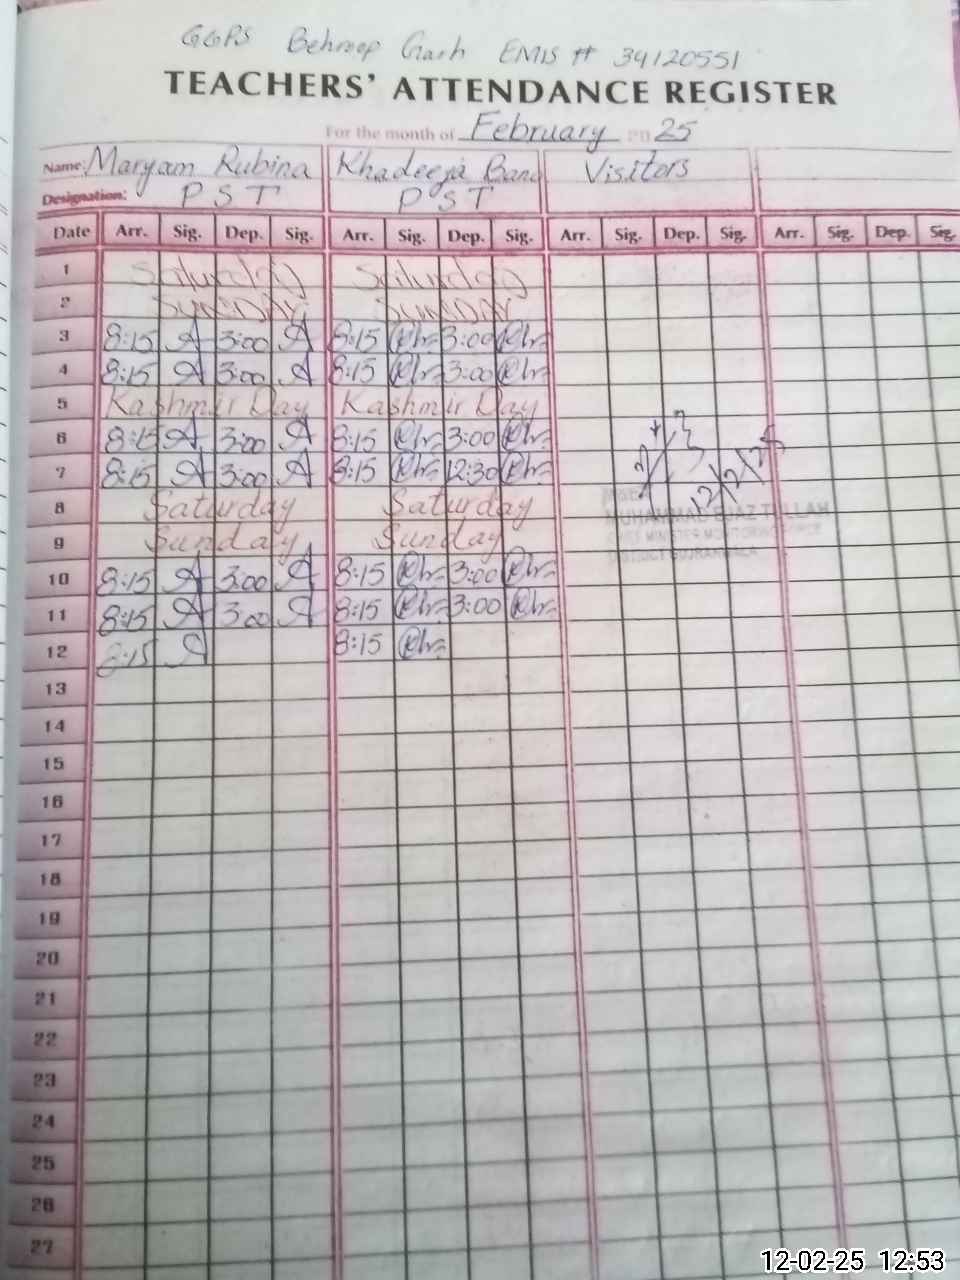 GGPS Behroop Garh EMIS # 34120551
TEACHERS' ATTENDANCE REGISTER
For the month of February 2025
Name: Maryam Rubina Khadeeja Bano Visitors
Designation: P S T P S T
Date Arr. Sig. Dep. Sig. Arr. Sig. Dep. Sig. Arr. Sig. Dep. Sig. Arr. Sig. Dep. Sig.
1 Saturday Saturday
2 SUNDAY SUNDAY
3 8:15 A 3:00 A 8:15 3:00
4 8:15 A 3:00 A 8:15 3:00
5 Kashmir Day Kashmir Day
6 8:15 A 3:00 A 8:15 3:00
7 8:15 A 3:00 A 8:15 12:30
12/2/25
8 Saturday Saturday
MUHAMMAD EJAZ ULLAH
9 Sunday Sunday
CHIEF MINISTER MONITORING FORCE
DISTRICT GUJRANWALA
10 8:15 A 3:00 A 8:15 3:00
11 8:15 A 3:00 A 8:15 3:00
12 8:15 A 8:15
13
14
15
16
17
18
19
20
21
22
23
24
25
26
27
12-02-25 12:53